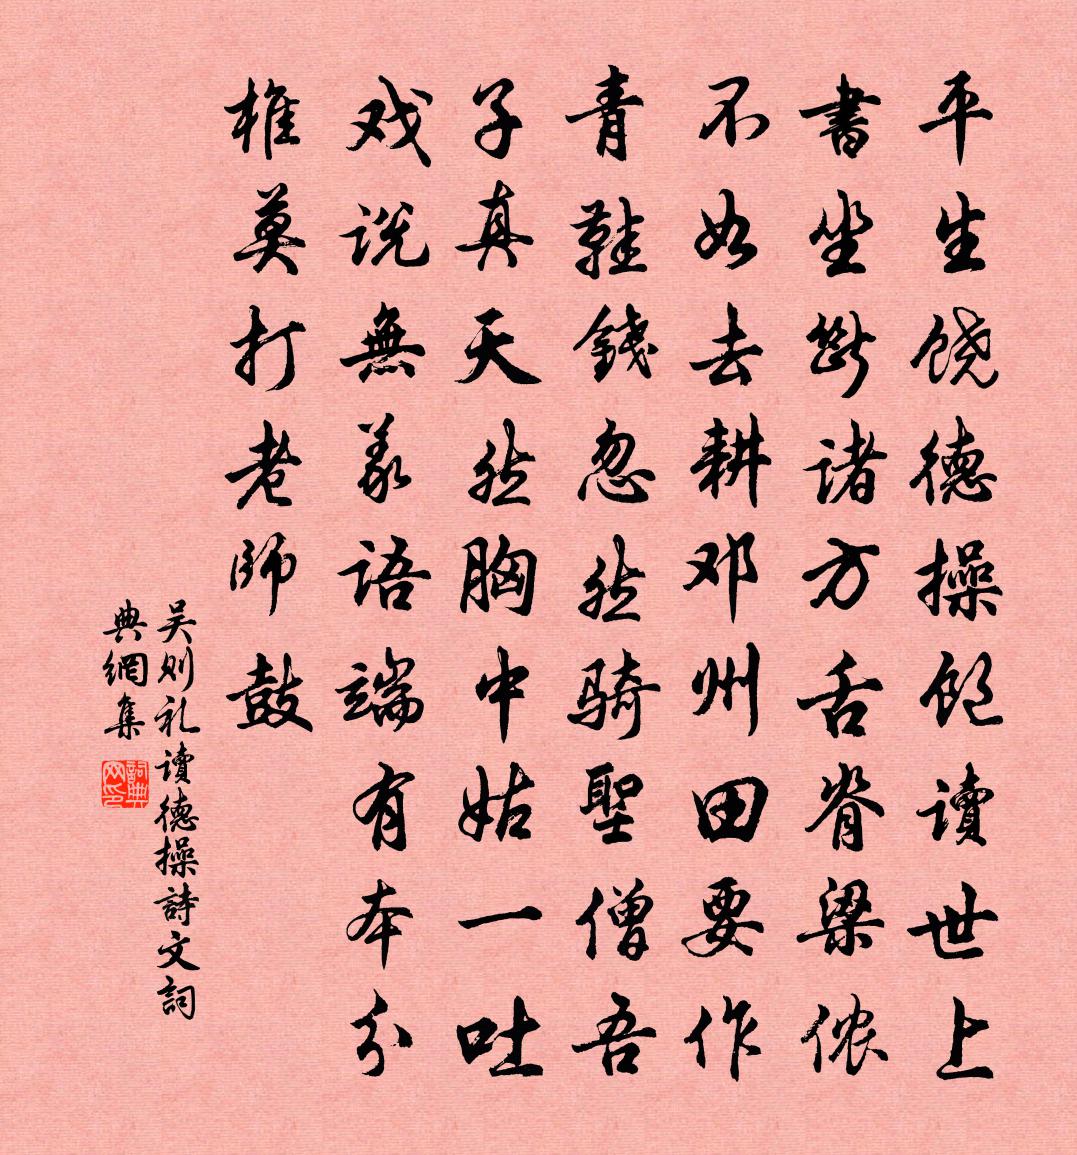 平生饶德操饱读世上
書坐斷诸方舌脊梁侬
不如去耕邓州田要作
青鞋錢忽然骑聖僧吾
子真天然胸中姑一吐
戏说無義语端有本分
椎莫打老师鼓
吴则礼讀德操詩文詞
典網集
詞典网印